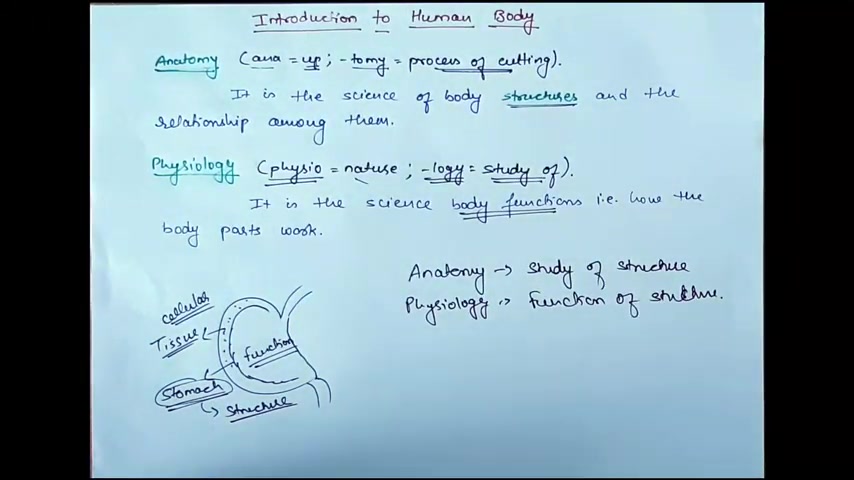 Introduction to Human Body
Anatomy (ana = up ; -tomy = process of cutting).
It is the science of body structures and the
relationship among them.
Physiology (physio = nature ; -logy = study of).
It is the science body functions i.e. how the
body parts work.
Anatomy → Study of structure
Physiology → function of structure.
cellular
Tissue
function
Stomach
→ structure